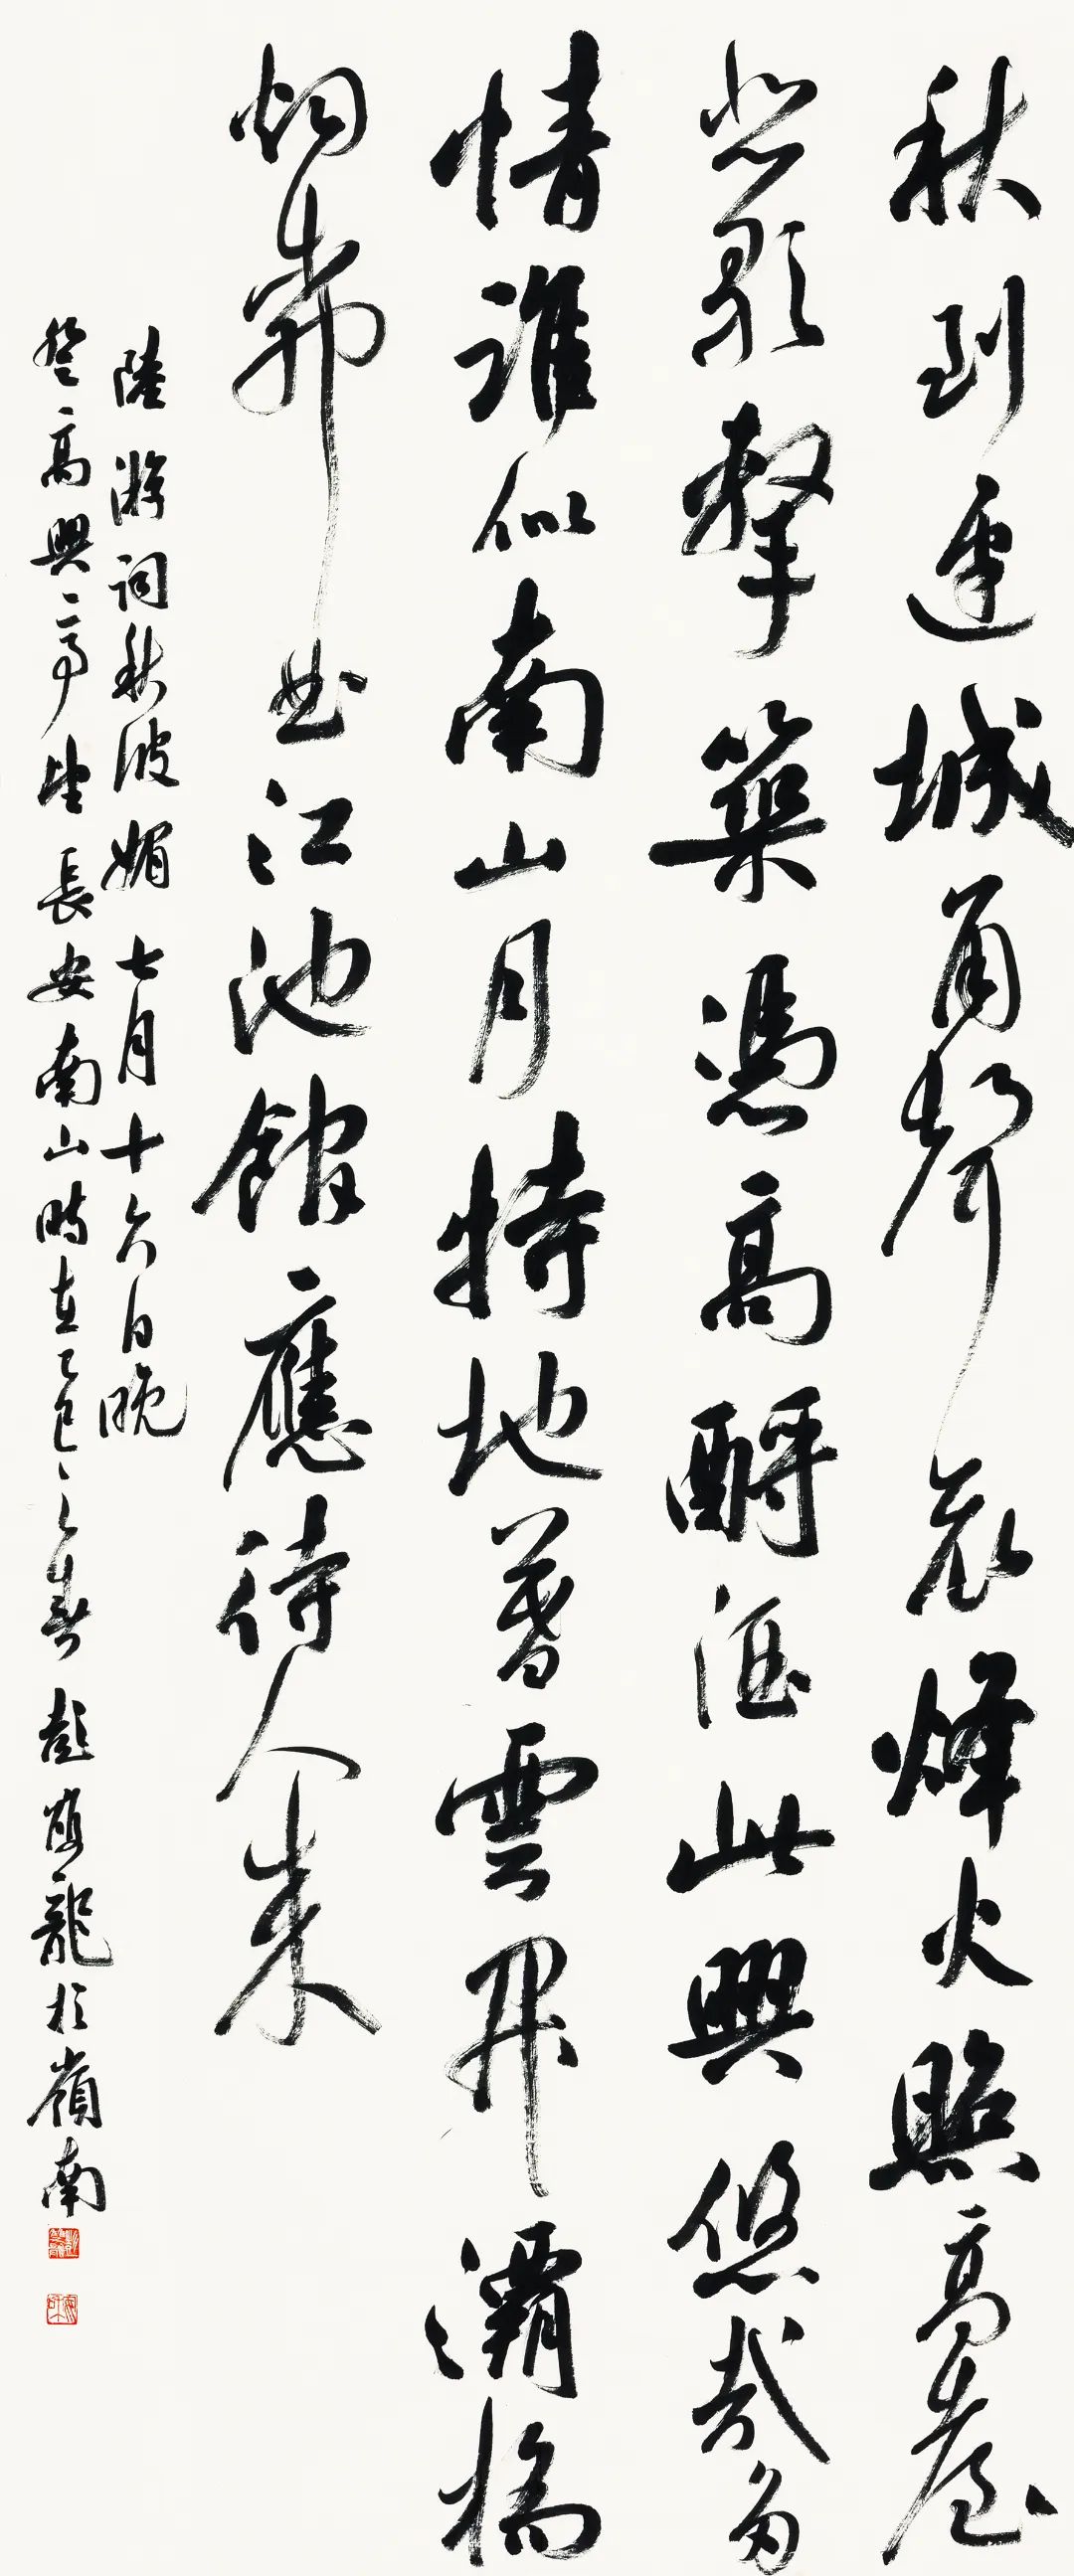 秋到邊城角聲哀烽火照高臺
悲歌擊筑憑高酹酒此興悠哉多
情誰似南山月特地暮雲開灞橋
煙柳曲江池館應待人來
陸游詞秋波媚七月十六日晚
登高興亭望長安南山時在乙巳之春彭雙龍於嶺南